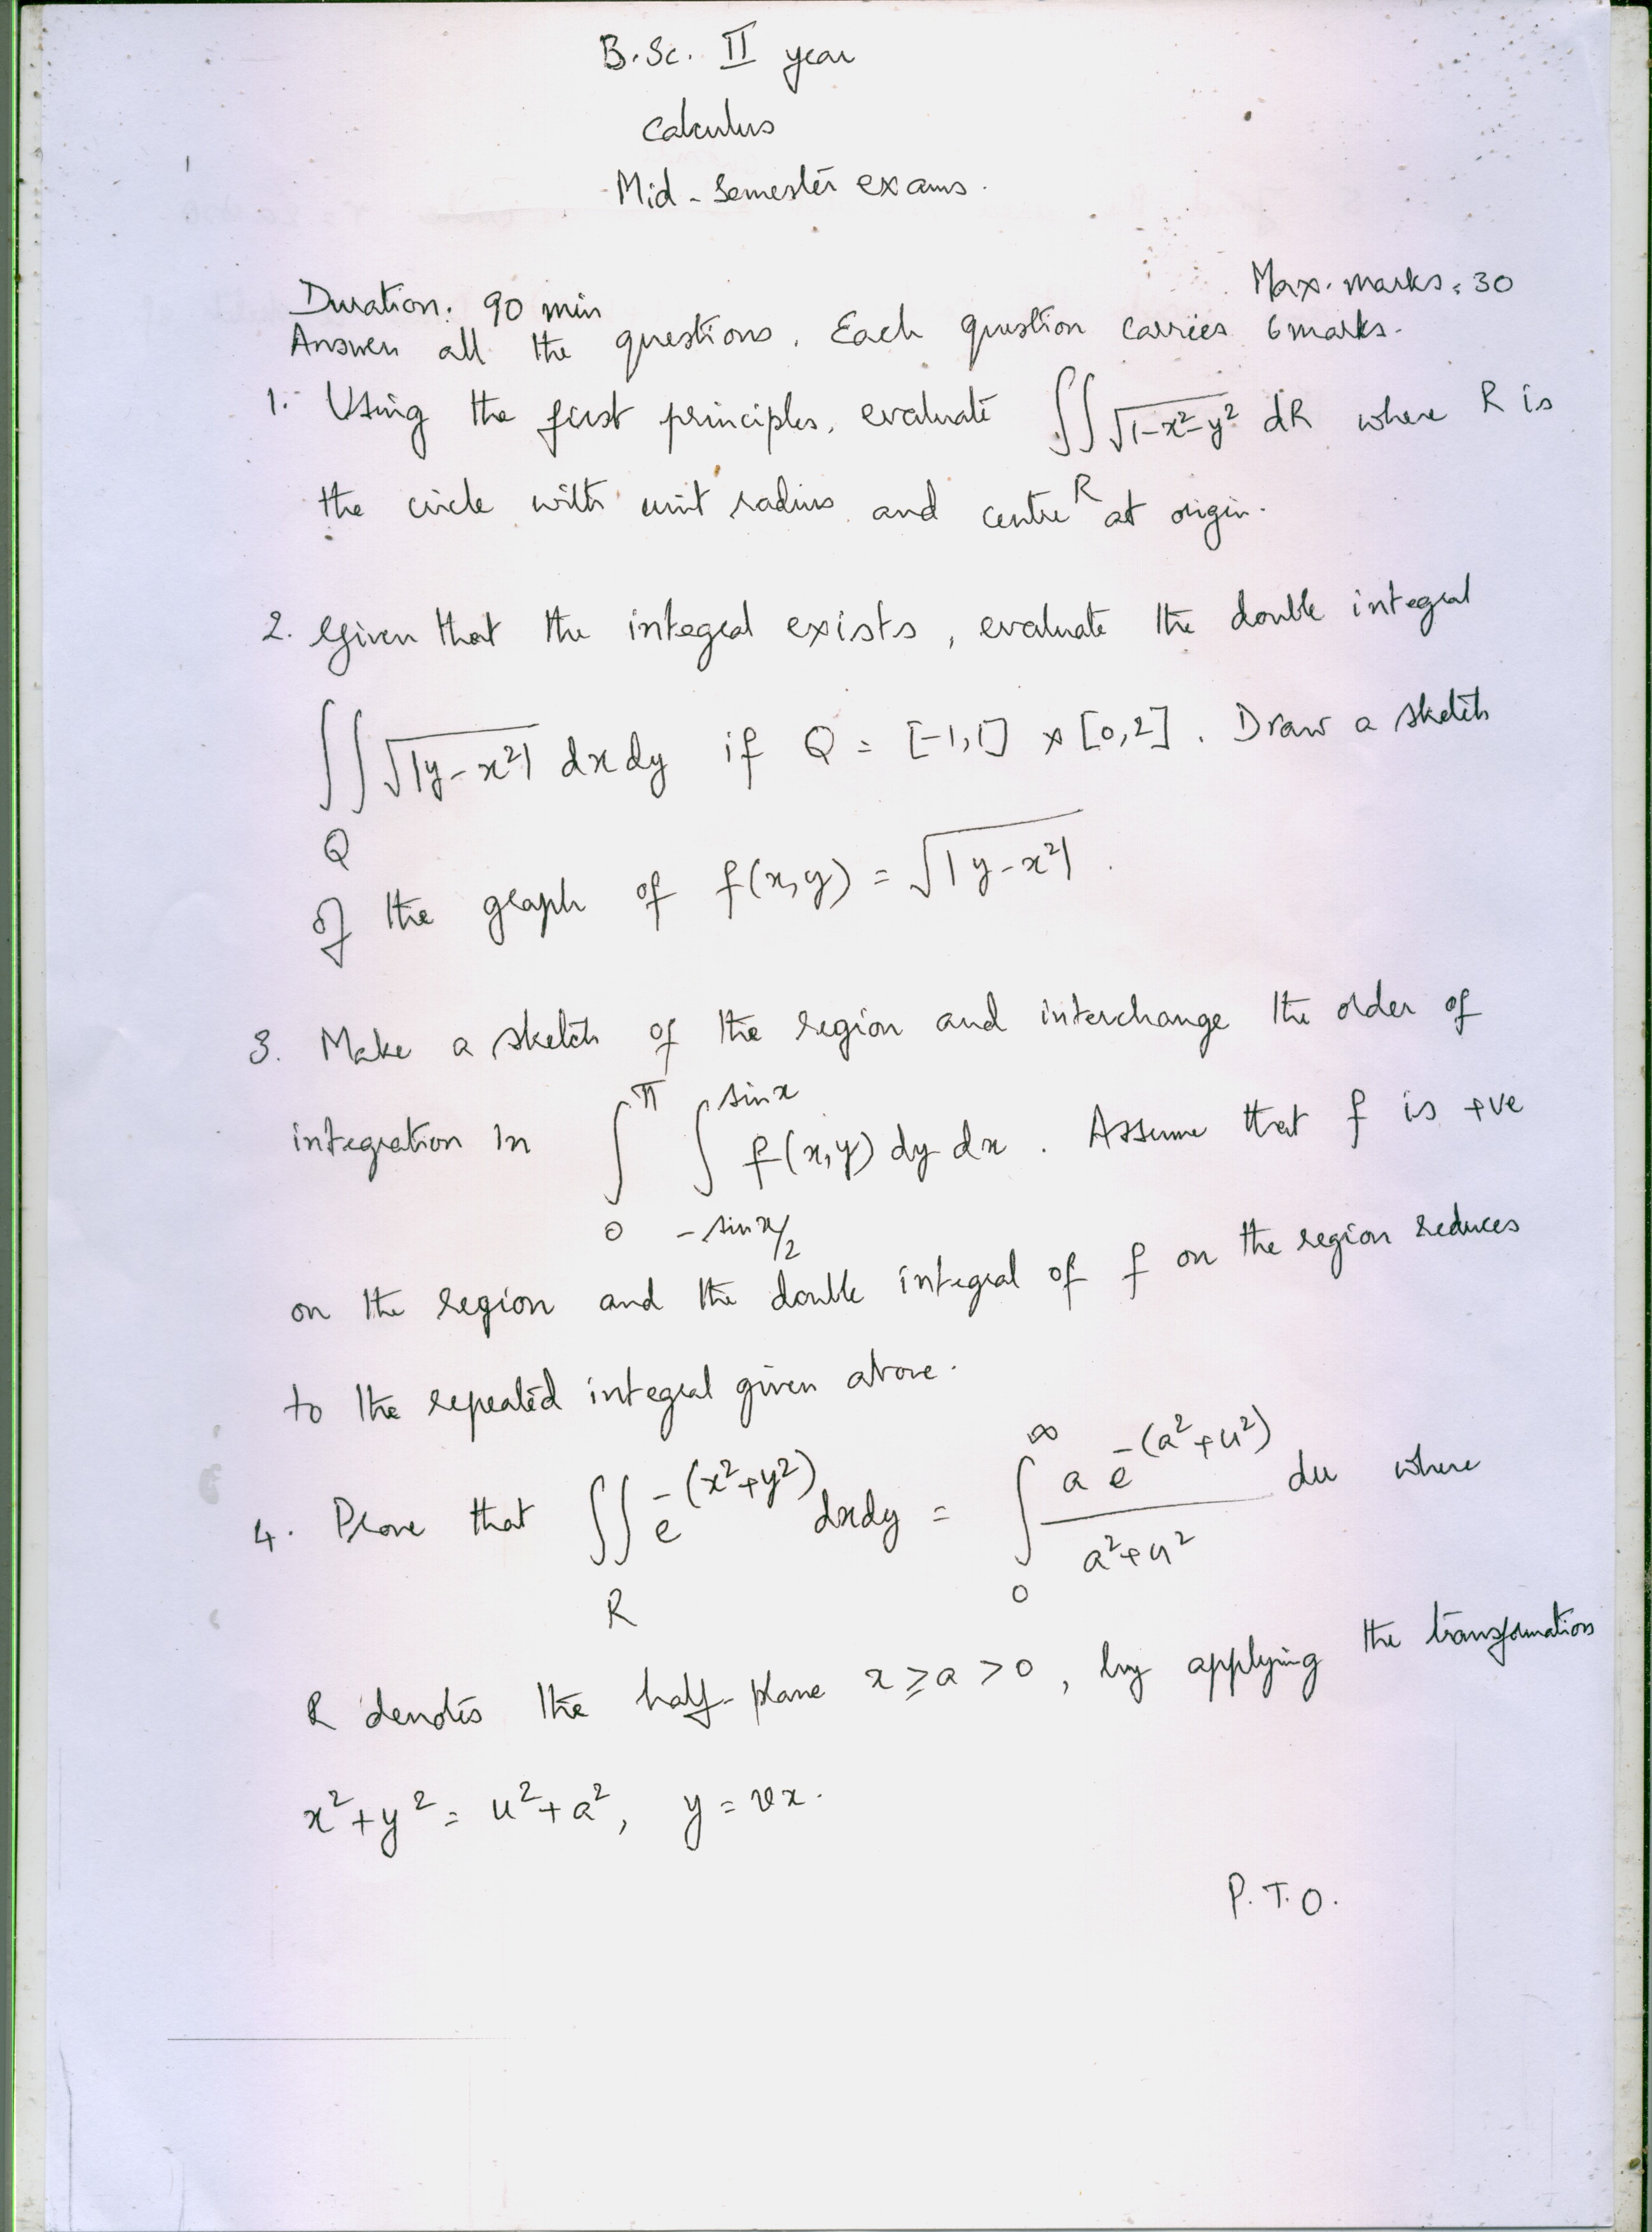 B.Sc. II year
Calculus
Mid-Semester exams.
Max. marks: 30
Duration: 90 min
Answer all the questions. Each question carries 6 marks.
1. Using the first principles, evaluate ∬ √(1-x²-y²) dR where R is
R
the circle with unit radius and centre at origin.
2. Given that the integral exists, evaluate the double integral
∬ √|y-x²| dx dy if Q = [-1,1] × [0,2]. Draw a sketch
Q
of the graph of f(x,y) = √|y-x²|.
3. Make a sketch of the region and interchange the order of
integration in ∫₀^π ∫_{-sin x/2}^{sin x} f(x,y) dy dx. Assume that f is +ve
on the region and the double integral of f on the region reduces
to the repeated integral given above.
4. Prove that ∬_R e^{-(x²+y²)} dxdy = ∫₀^∞ a e^{-(a²+u²)} / (a²+u²) du where
R denotes the half-plane x ≥ a > 0, by applying the transformation
x²+y² = u²+a², y = vx.
P.T.O.